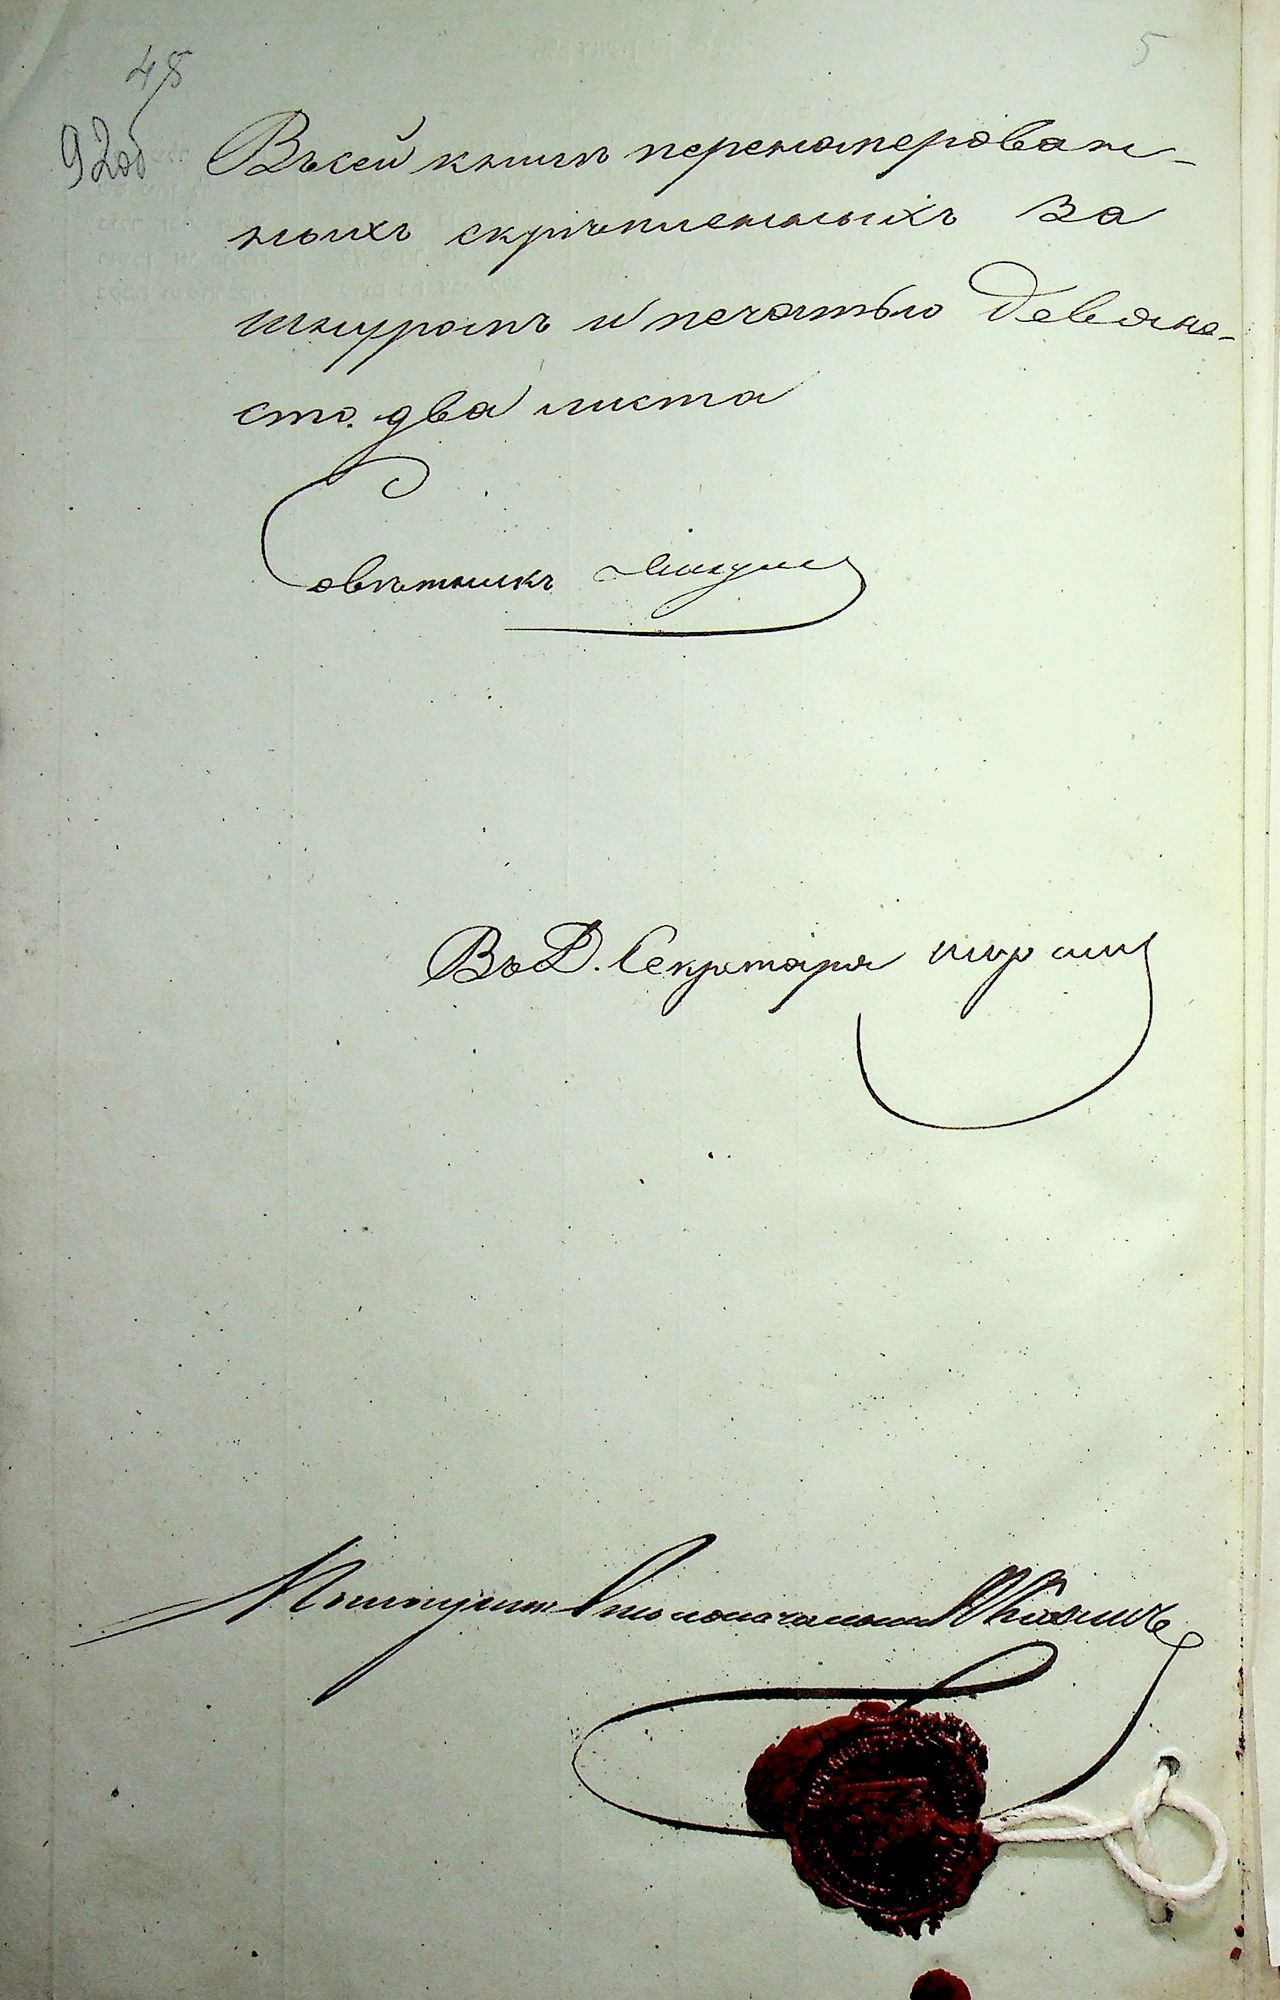 48
92об
5
Въ сей книгѣ переномерован-
ныхъ скрѣпленныхъ за
шнуромъ и печатью Девяно-
сто. два листа
Совѣтникъ
Въ Д. Секретаря
Столоначальника